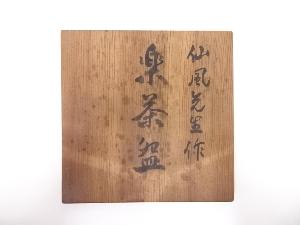 仙風先生作
楽茶盌